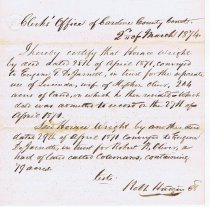 Clerk's Office of Caroline County Court
2nd of March 1874
I hereby certify that Horace Wright
by deed dated 28th of April 1871, conveyed
to Eugene F. in trust for the separate
use of Lucinda, wife of Stephen Oliver, 204
acres of land, on which he then resided which
deed was admitted to record on the 29th of
April 1871.
Said Horace Wright by another deed
dated 28th of April 1871 conveyed to Eugene
in trust for Robert B. Oliver, a
tract of land called Colemans, containing
79 acres.
Teste:
Robt Hudgin Clk